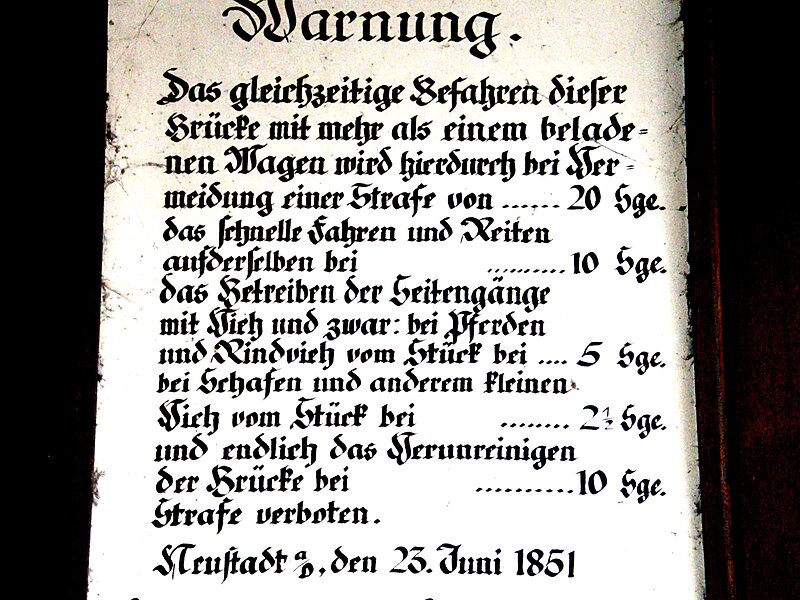 Warnung.
Das gleichzeitige Befahren dieser
Brücke mit mehr als einem belade-
nen Wagen wird hierdurch bei Ver-
meidung einer Strafe von ...... 20 Sge.
das schnelle Fahren und Reiten
aufderselben bei .......... 10 Sge.
das Betreiben der Seitengänge
mit Vieh und zwar: bei Pferden
und Rindvieh vom Stück bei .... 5 Sge.
bei Schafen und anderem kleinen
Vieh vom Stück bei ........ 2½ Sge.
und endlich das Verunreinigen
der Brücke bei ..........10 Sge.
Strafe verboten.
Neustadt a/D, den 23. Juni 1851